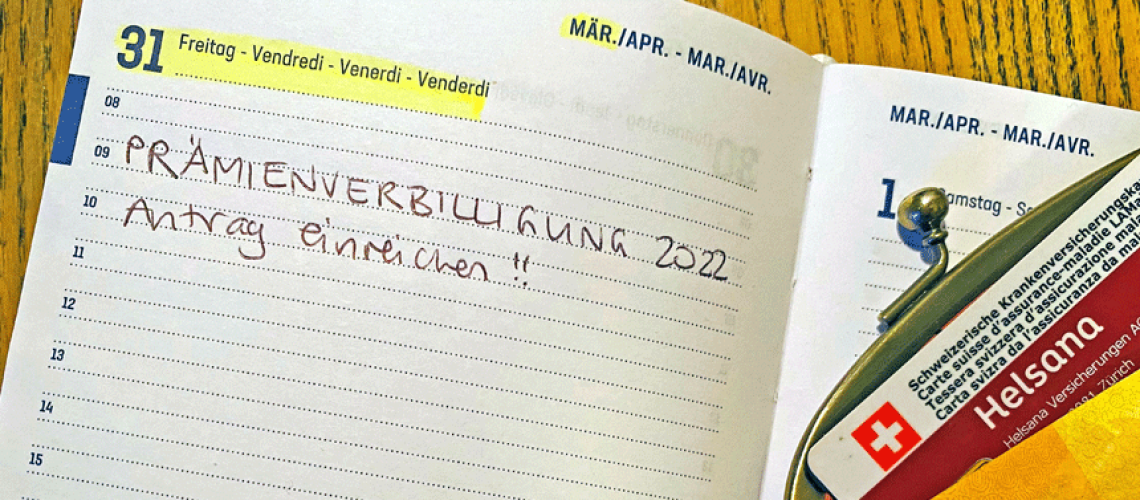 31 Freitag - Vendredi - Venerdi - Venderdi
MÄR./APR. - MAR./AVR.
08
09 PRÄMIENVERBILLIGUNG 2022
10 Antrag einreichen !!
11
12
13
14
15
MAR./APR. - MAR./AVR.
1
Schweizerische
Carte suisse d'assurance-maladie
Tessera svizzera d'assicurazione
Carta svizra da l'assicuranza da
Helsana
Helsana Versicherungen
Zürich